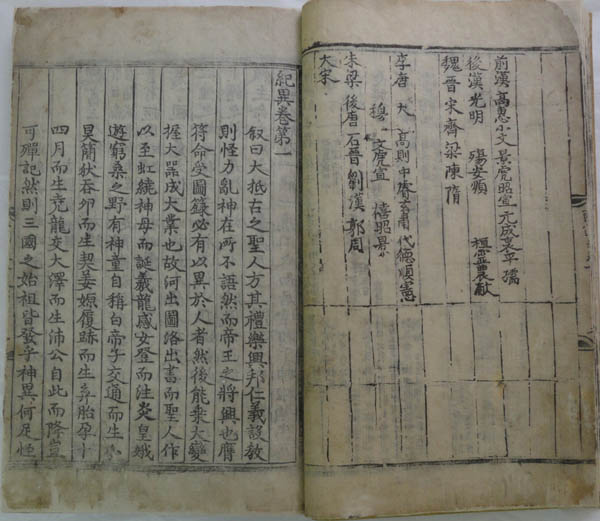 前漢 高惠小文景虎昭宣元成哀平孺
後漢 光明 殤安順 桓靈農獻
魏晉宋齊梁陳隋
李唐 大 高則中睿玄肅代德順憲
穆 文虎宣 僖昭景
朱梁 後唐 石晉 劉漢 郭周
大宋
紀異卷第一
叙曰大抵古之聖人方其禮樂興邦仁義設教
則怪力亂神在所不語然而帝王之將興也膺
符命受圖籙必有以異於人者然後能乘大變
握大器成大業也故河出圖洛出書而聖人作
以至虹繞神母而誕羲龍感女登而注炎皇娥
遊窮桑之野有神童自稱白帝子交通而生小
昊簡狄吞卵而生契姜嫄履跡而生弃胎孕十
四月而生堯龍交大澤而生沛公自此而降豈
可殫記然則三國之始祖皆發乎神異何足怪